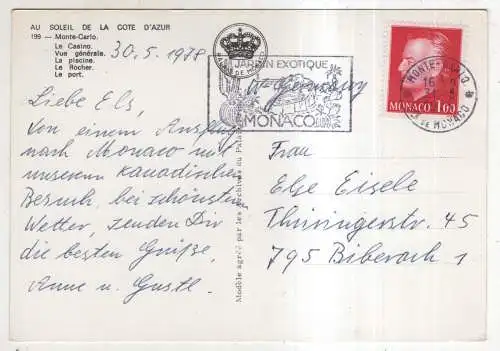 AU SOLEIL DE LA COTE D'AZUR
199 — Monte-Carlo.
Le Casino.
Vue générale.
La piscine.
Le Rocher.
Le port.
30.5.1978
Liebe Els,
Von einem Ausflug
nach Monaco mit
unserem kanadischen
Besuch, bei schönstem
Wetter, senden Dir
die besten Grüße,
Anne u. Gustl.
Modèle agréé par les Archives du Palais
JARDIN EXOTIQUE
MONACO
W. Germany
MONTE-CARLO
MONACO 1,00
Frau
Else Eisele
Thüringerstr. 45
795 Biberach 1